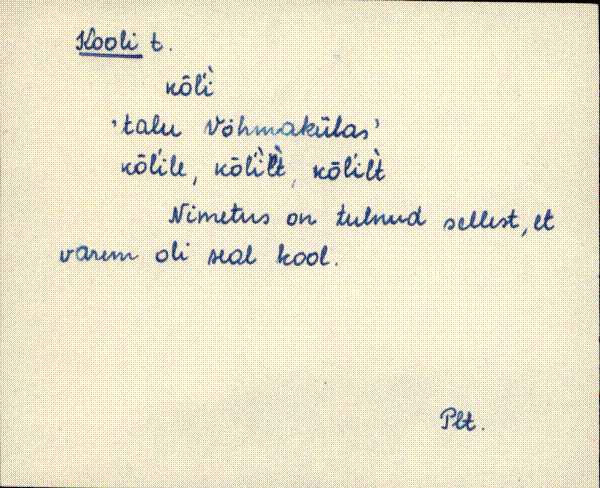 Kooli t.
kōĺì
'talu Võhmakülas'
kōĺile, kōĺìlt̀, kōĺilt̀
Nimetus on tulnud sellest, et
varem oli seal kool.
Plt.